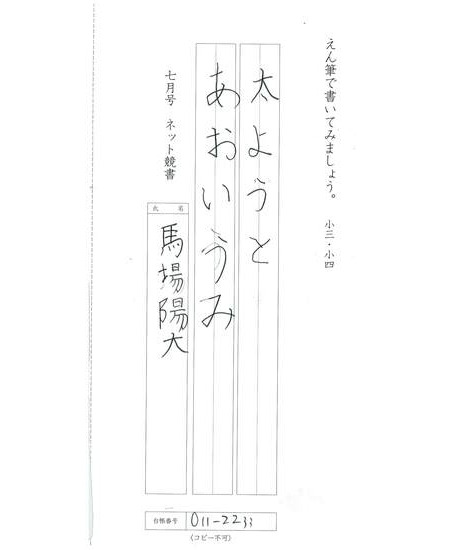 えん筆で書いてみましょう。　小三・小四
太ようと
あおいうみ
七月号　ネット競書
氏　名
馬場陽大
台帳番号 011-2233
(コピー不可)